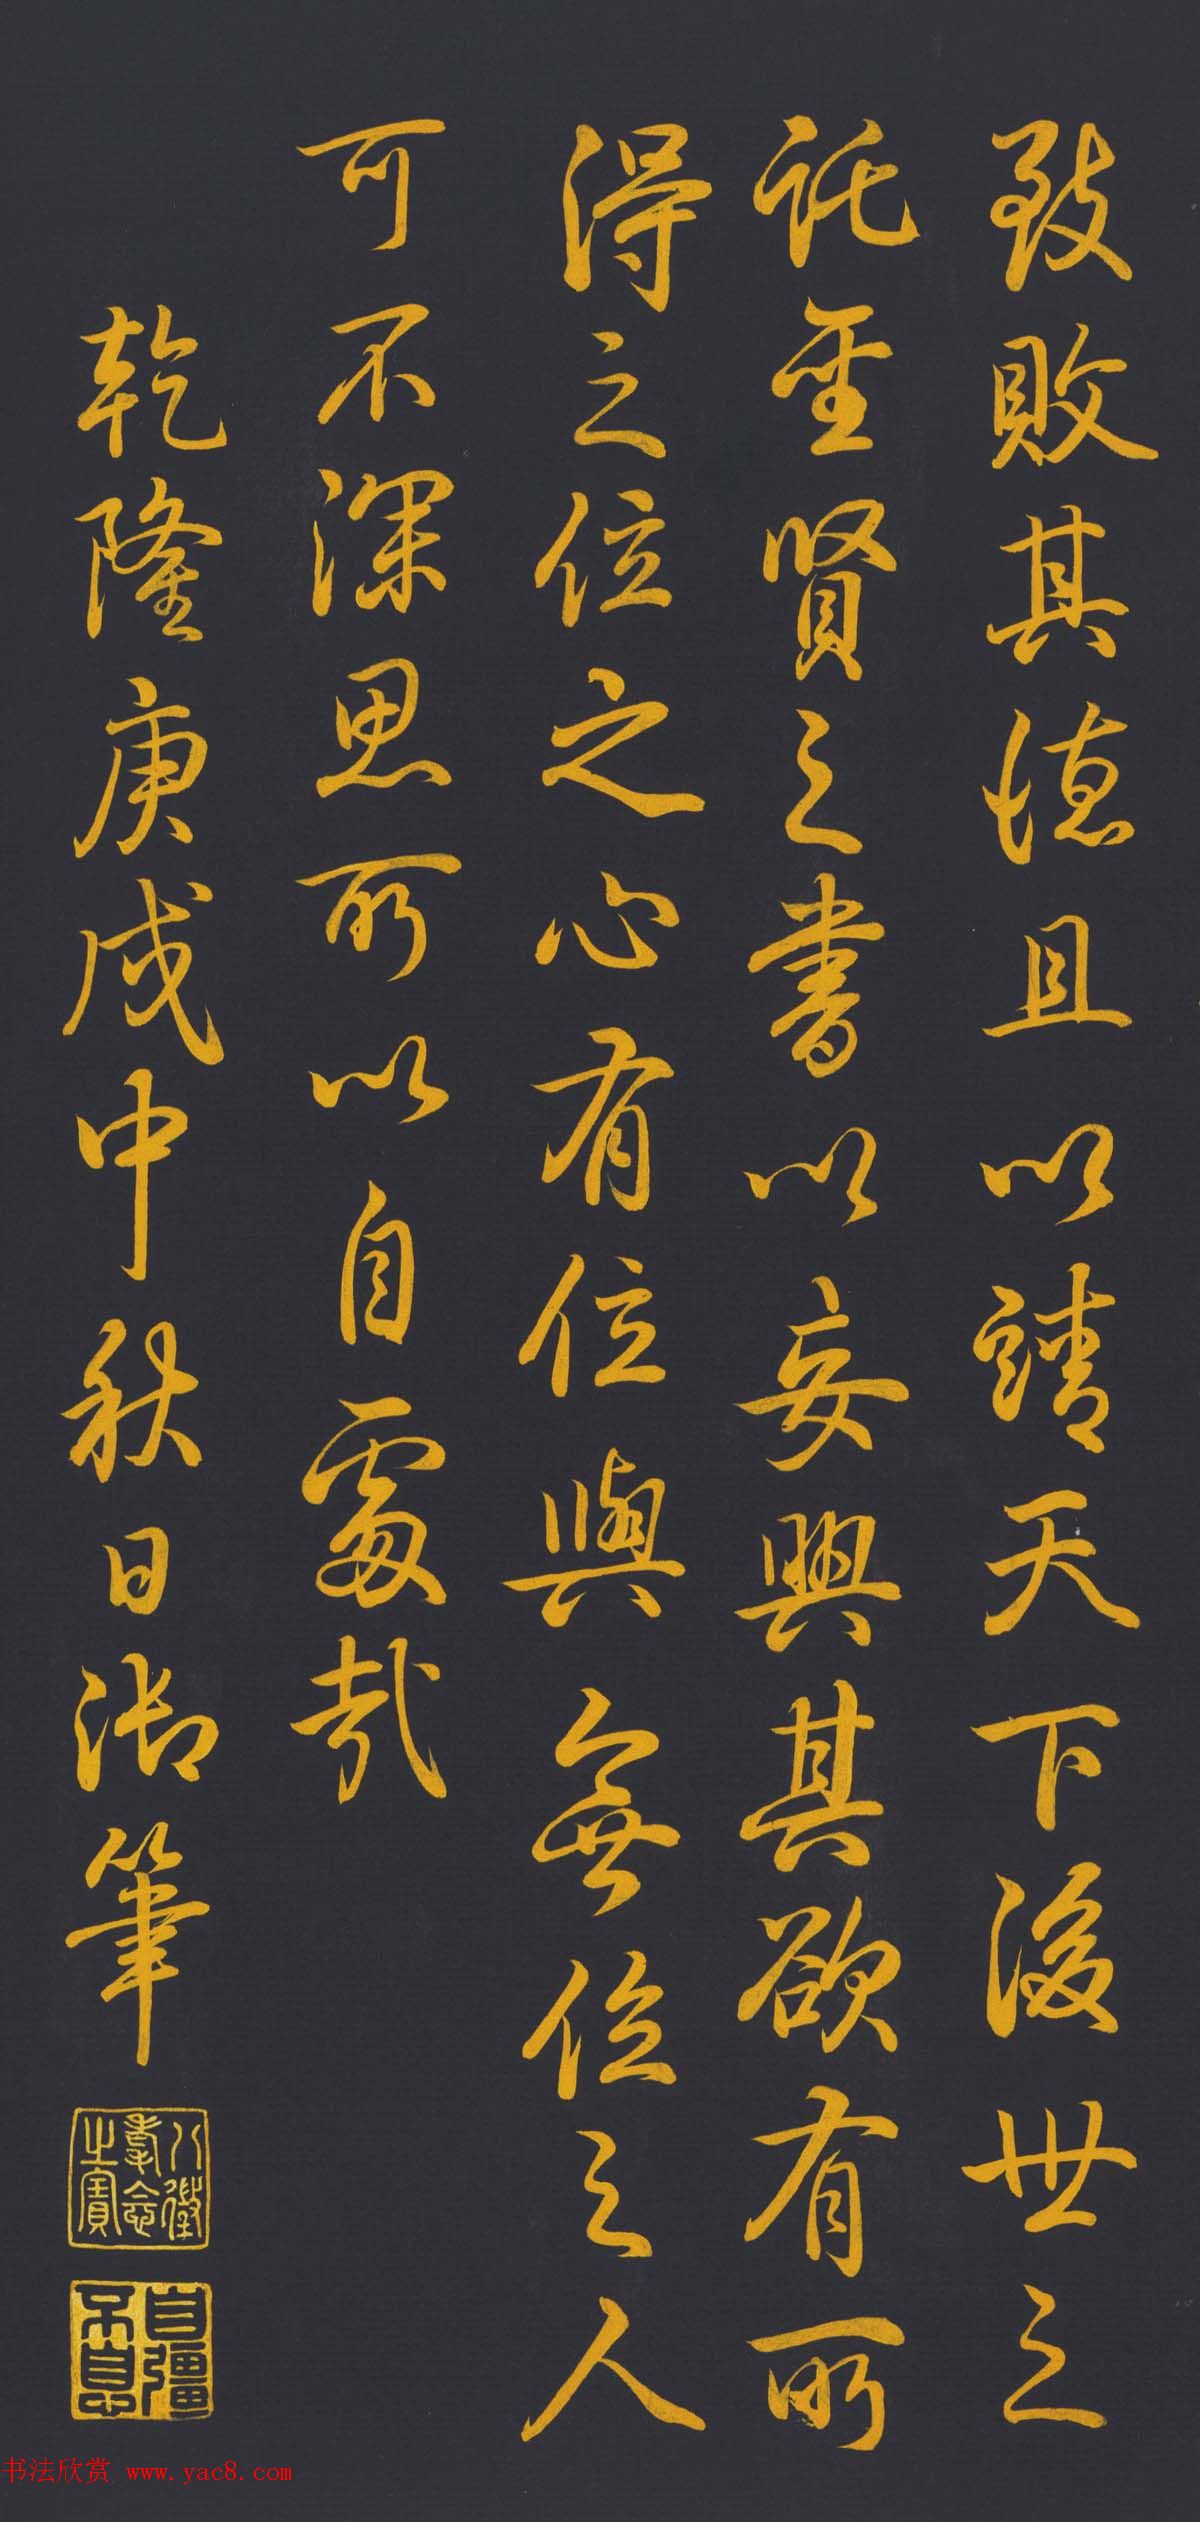 致敗其德且以請天下後世之
託聖賢之書以妄興其欲有所
得之位之心有位與無位之人
可不深思所以自處哉
乾隆庚戌中秋日御筆
八徵耄念之寶
自彊不息
书法欣赏 www.yac8.com